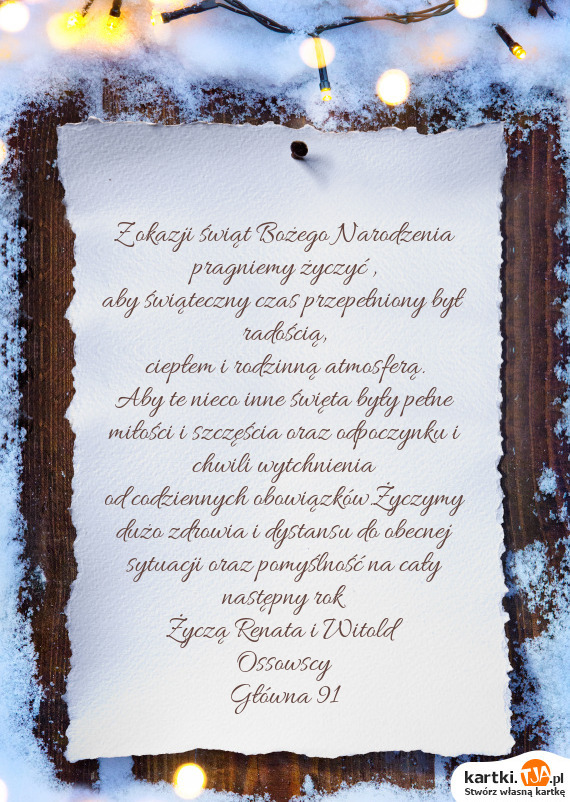 Z okazji świąt Bożego Narodzenia
pragniemy życzyć ,
aby świąteczny czas przepełniony był
radością,
ciepłem i rodzinną atmosferą.
Aby te nieco inne święta były pełne
miłości i szczęścia oraz odpoczynku i
chwili wytchnienia
od codziennych obowiązków.Życzymy
dużo zdrowia i dystansu do obecnej
sytuacji oraz pomyślność na cały
następny rok
Życzą Renata i Witold
Ossowscy
Główna 91
kartki.TJA.pl
Stwórz własną kartkę